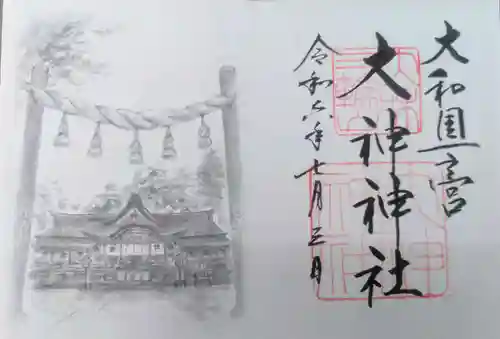 大和國一之宮
大神神社
令和六年七月三日